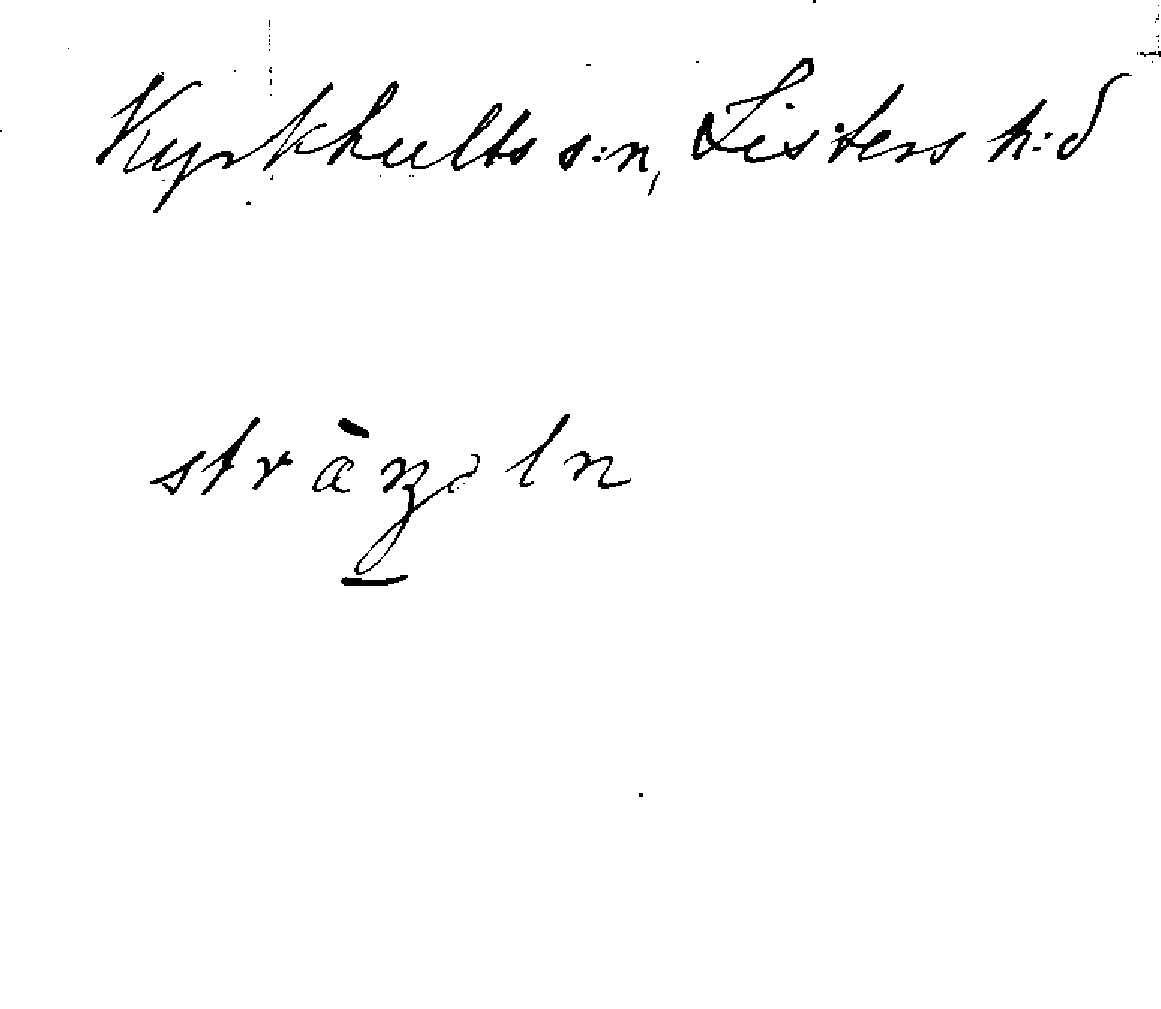 Kyrkhults s:n, Listers h:d
stràŋəln